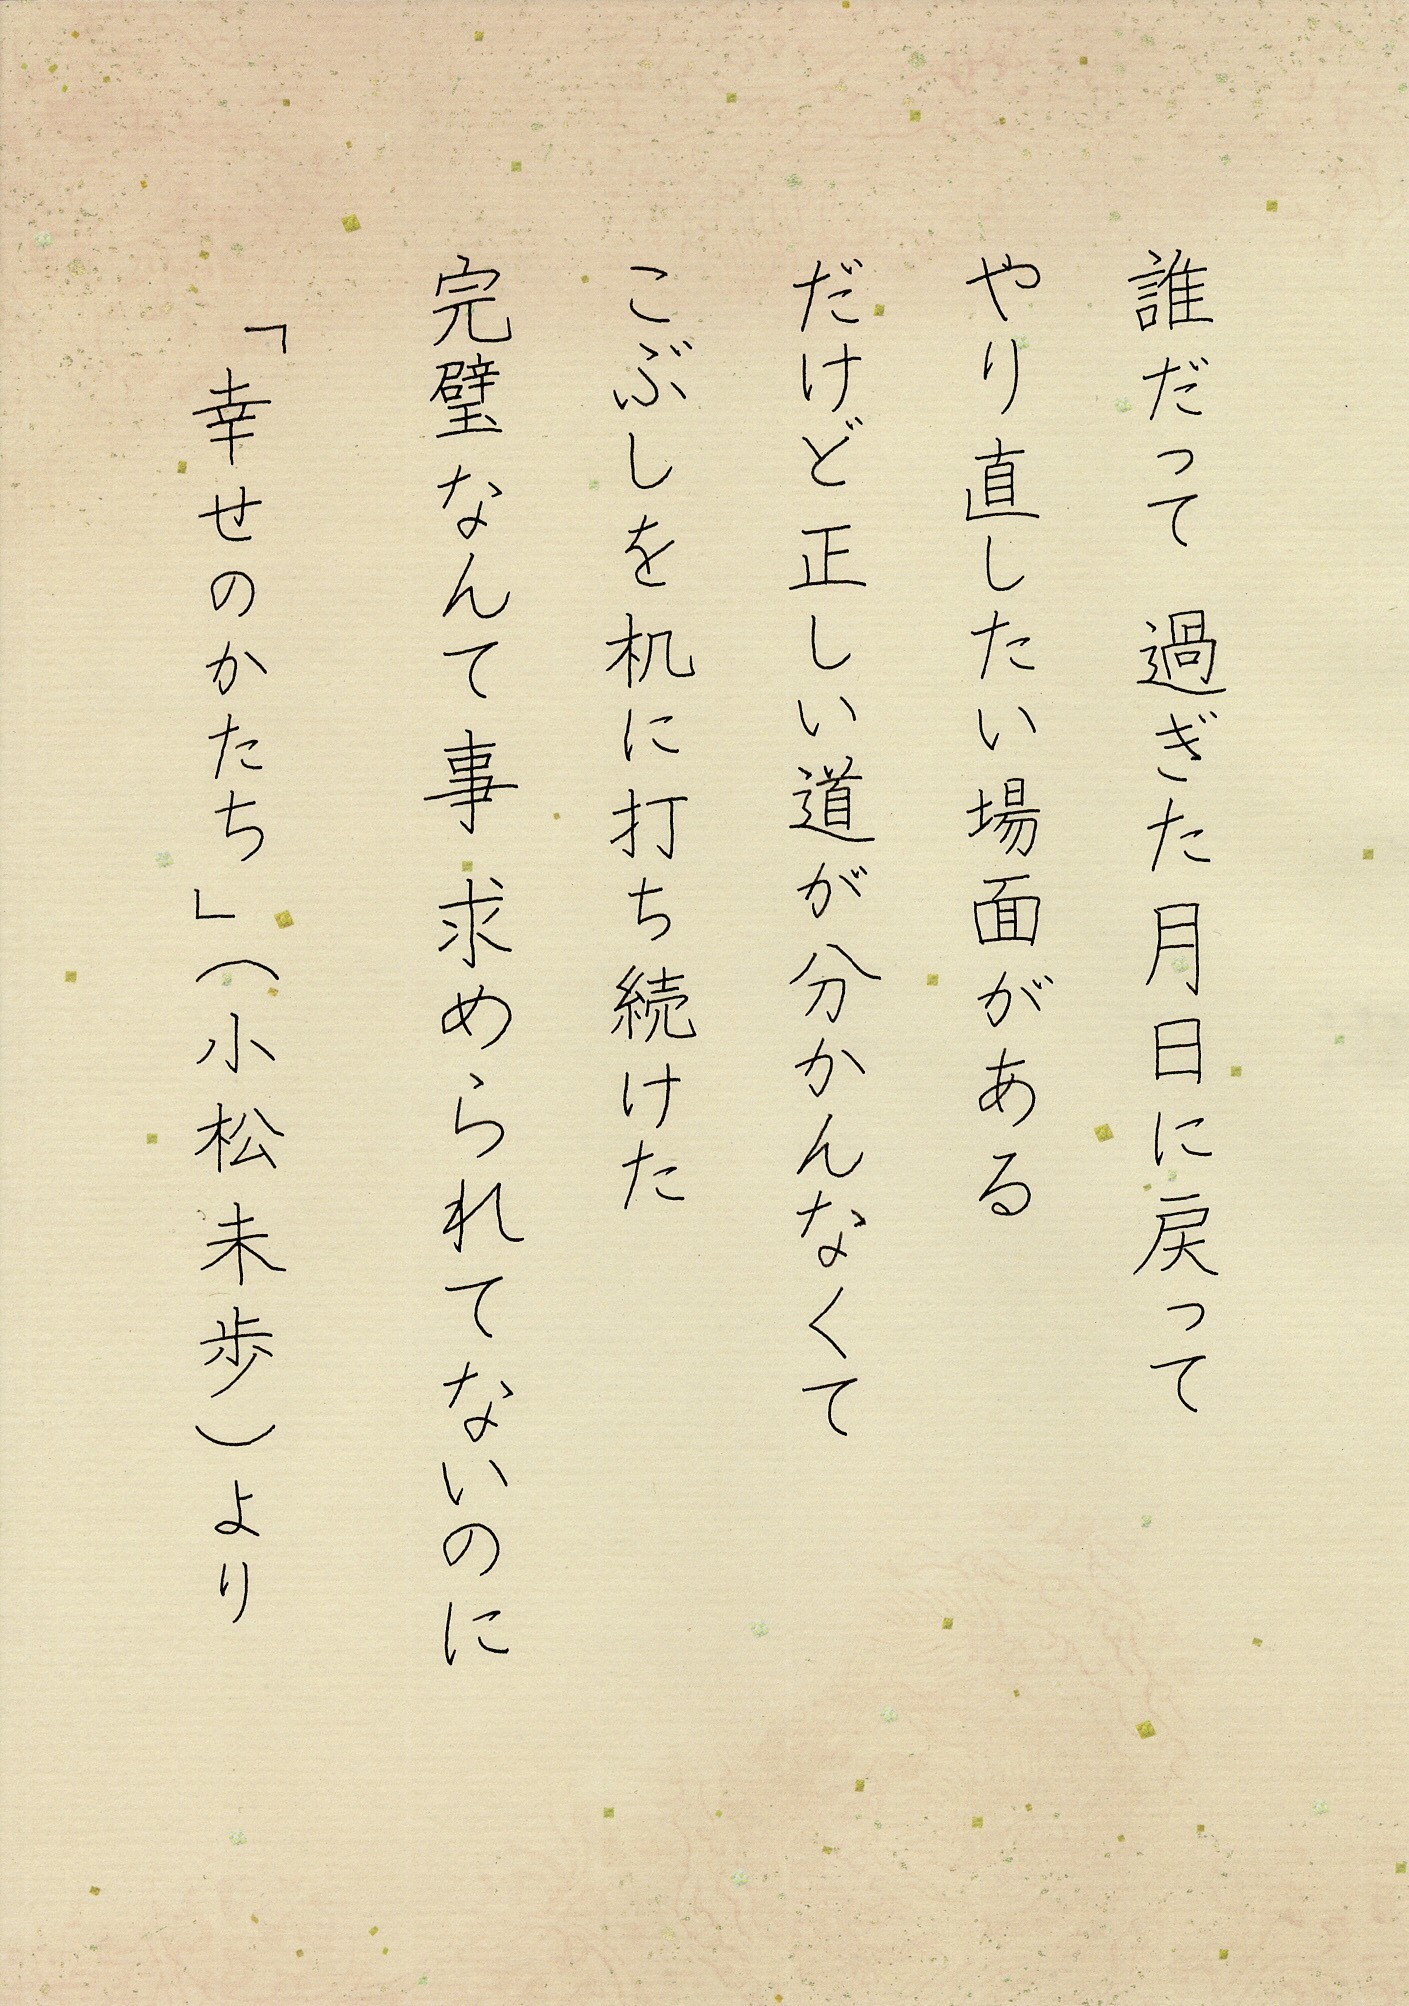 誰だって 過ぎた月日に戻って
やり直したい場面がある
だけど正しい道が分かんなくて
こぶしを机に打ち続けた
完璧なんて事 求められてないのに
「幸せのかたち」(小松未歩)より